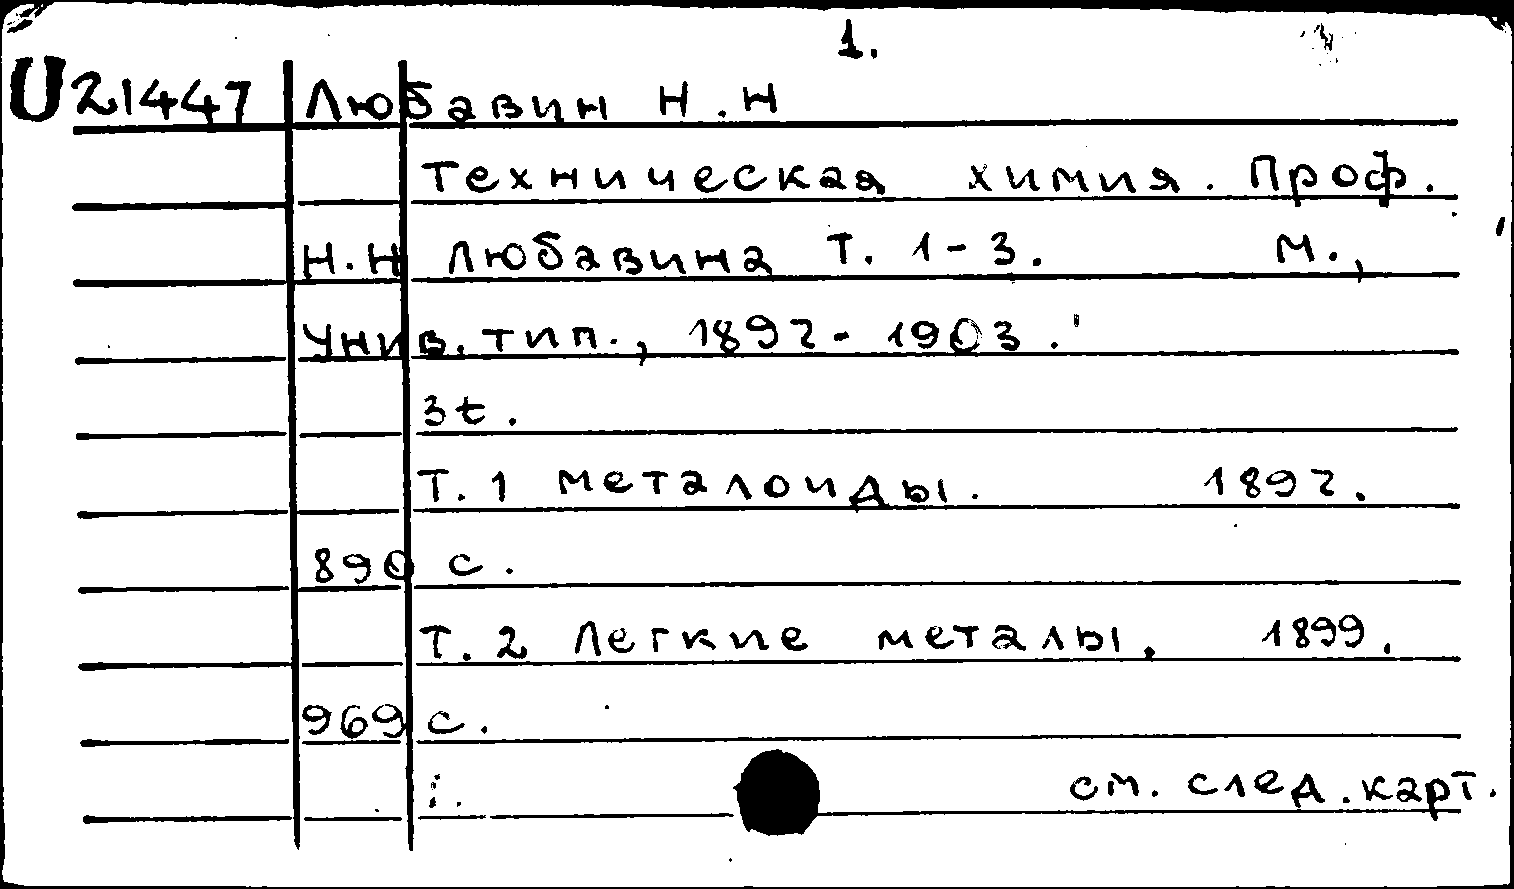 1.
U21447 Любавин Н.Н
Техническая химия. Проф.
Н.Н Любавина Т. 1-3. М.,
Унив. тип., 1892-1903.
3t.
Т. 1 Металоиды. 1892.
890 с.
Т. 2 Легкие металы. 1899.
969 с.
см. след. карт.